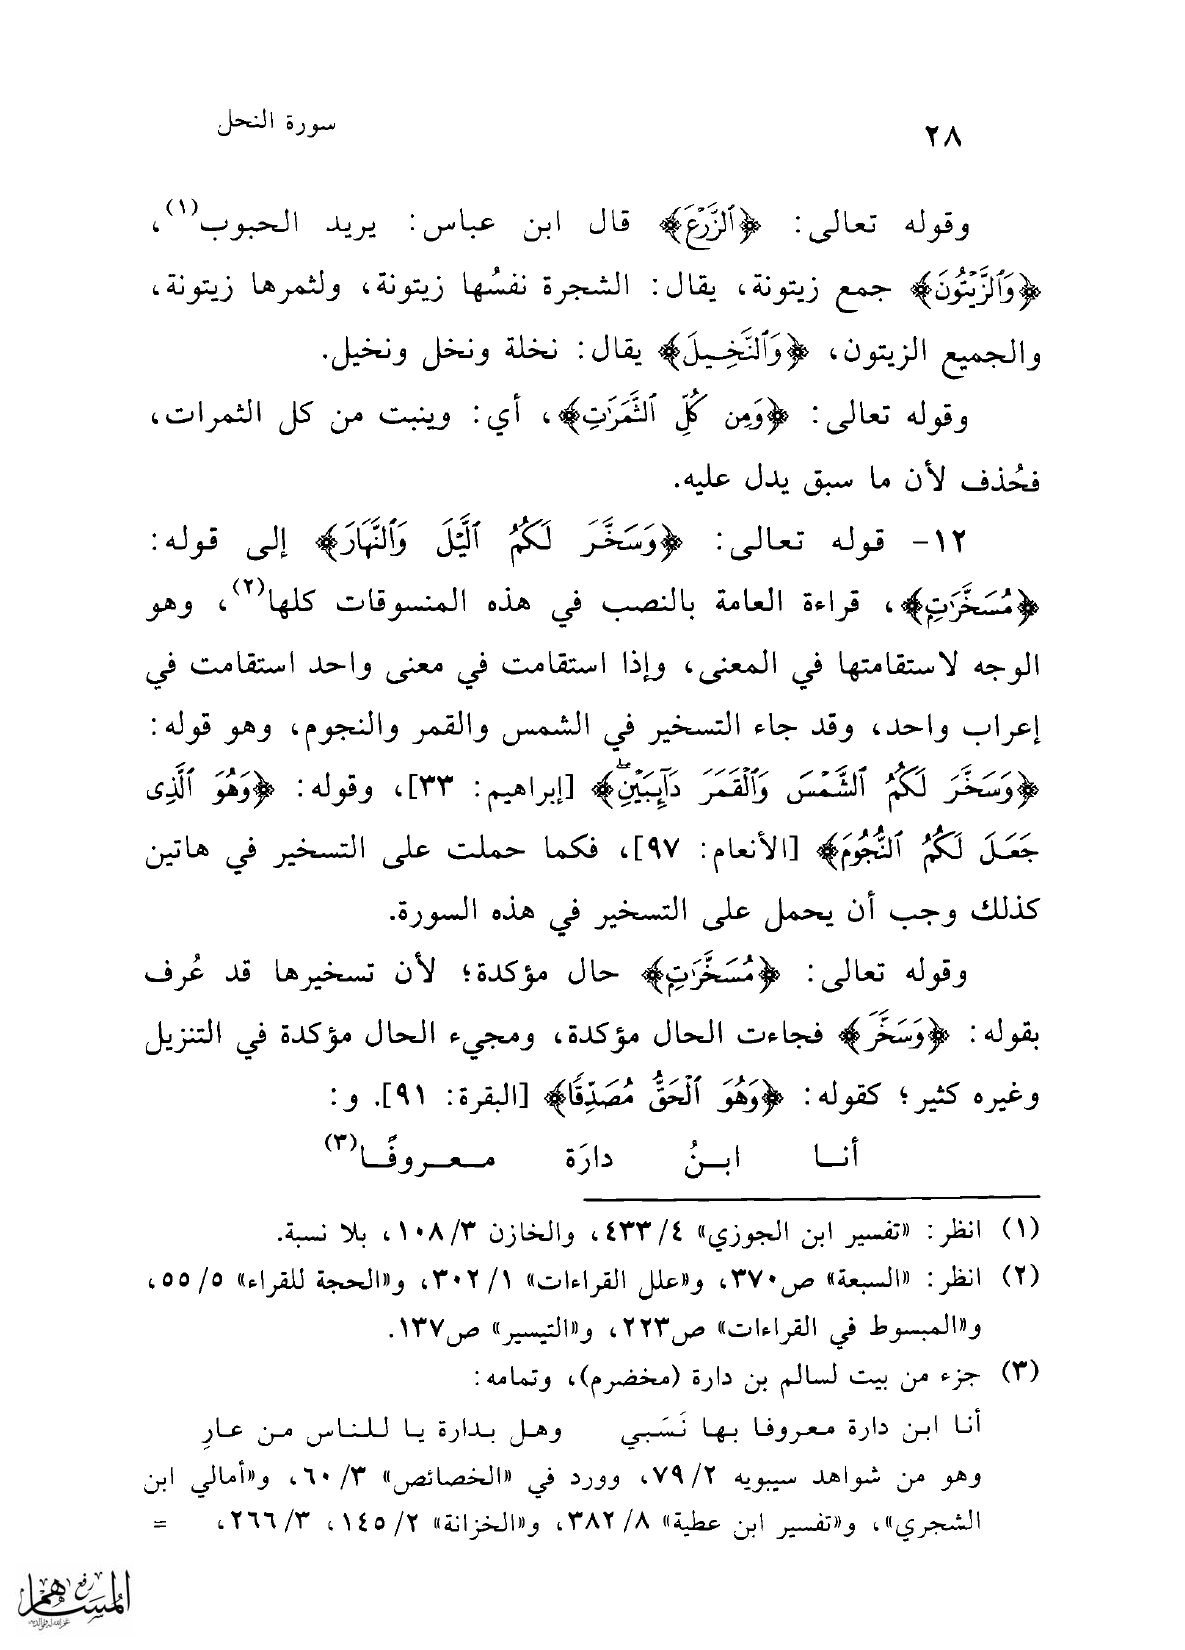 ٢٨
سورة النحل
وقوله تعالى: ﴿ٱلزَّرْعَ﴾ قال ابن عباس: يريد الحبوب(١)،
﴿وَٱلزَّيْتُونَ﴾ جمع زيتونة، يقال: الشجرة نفسُها زيتونة، ولثمرها زيتونة،
والجميع الزيتون، ﴿وَٱلنَّخِيلَ﴾ يقال: نخلة ونخل ونخيل.
وقوله تعالى: ﴿وَمِن كُلِّ ٱلثَّمَرَٰتِ﴾، أي: وينبت من كل الثمرات،
فحُذف لأن ما سبق يدل عليه.
١٢- قوله تعالى: ﴿وَسَخَّرَ لَكُمُ ٱلَّيْلَ وَٱلنَّهَارَ﴾ إلى قوله:
﴿مُسَخَّرَٰتٍ﴾، قراءة العامة بالنصب في هذه المنسوقات كلها(٢)، وهو
الوجه لاستقامتها في المعنى، وإذا استقامت في معنى واحد استقامت في
إعراب واحد، وقد جاء التسخير في الشمس والقمر والنجوم، وهو قوله:
﴿وَسَخَّرَ لَكُمُ ٱلشَّمْسَ وَٱلْقَمَرَ دَآئِبَيْنِۖ﴾ [إبراهيم: ٣٣]، وقوله: ﴿وَهُوَ ٱلَّذِى
جَعَلَ لَكُمُ ٱلنُّجُومَ﴾ [الأنعام: ٩٧]، فكما حملت على التسخير في هاتين
كذلك وجب أن يحمل على التسخير في هذه السورة.
وقوله تعالى: ﴿مُسَخَّرَٰتٍ﴾ حال مؤكدة؛ لأن تسخيرها قد عُرف
بقوله: ﴿وَسَخَّرَ﴾ فجاءت الحال مؤكدة، ومجيء الحال مؤكدة في التنزيل
وغيره كثير؛ كقوله: ﴿وَهُوَ ٱلْحَقُّ مُصَدِّقًا﴾ [البقرة: ٩١]. و:
أنـا ابـنُ دارَة مـعـروفًـا(٣)
(١) انظر: «تفسير ابن الجوزي» ٤/ ٤٣٣، والخازن ٣/ ١٠٨، بلا نسبة.
(٢) انظر: «السبعة» ص٣٧٠، و«علل القراءات» ١/ ٣٠٢، و«الحجة للقراء» ٥/ ٥٥،
و«المبسوط في القراءات» ص٢٢٣، و«التيسير» ص١٣٧.
(٣) جزء من بيت لسالم بن دارة (مخضرم)، وتمامه:
أنا ابن دارة معروفا بها نَسَبي وهل بدارة يا للناس من عارِ
وهو من شواهد سيبويه ٢/ ٧٩، وورد في «الخصائص» ٣/ ٦٠، و«أمالي ابن
الشجري»، و«تفسير ابن عطية» ٨/ ٣٨٢، و«الخزانة» ٢/ ١٤٥، ٣/ ٢٦٦، =